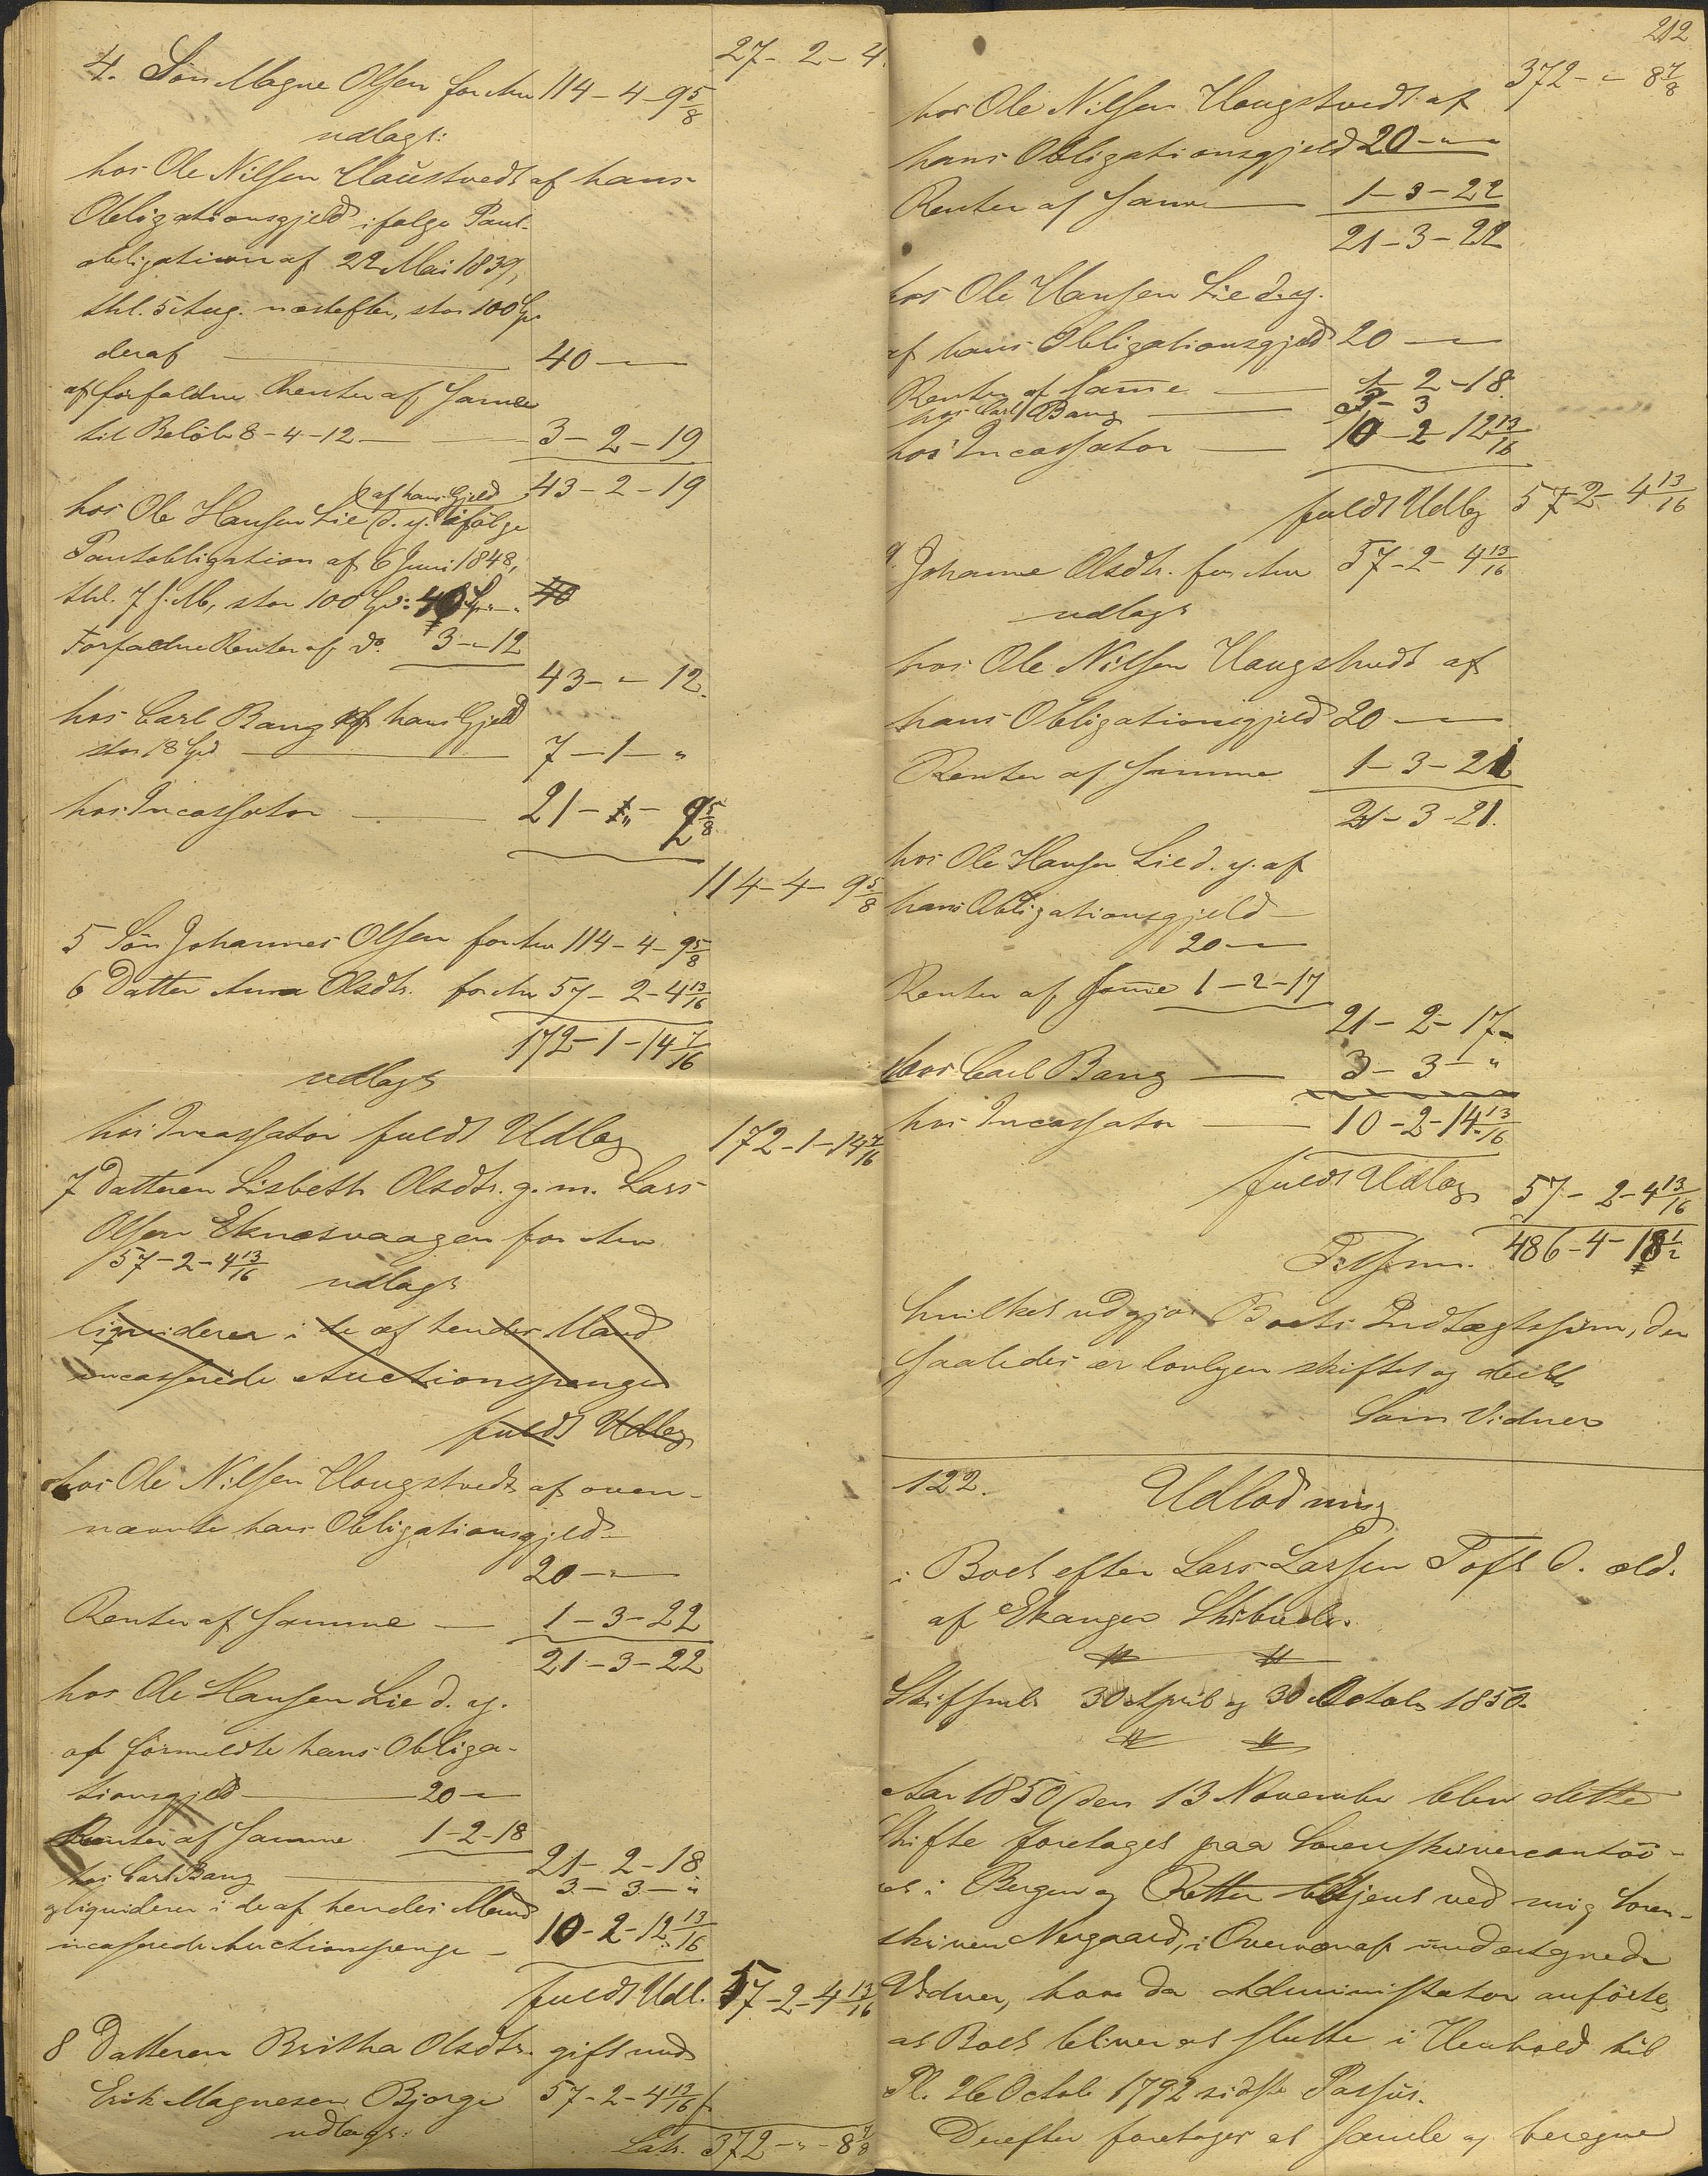 27 - 2 - 4.
4. Søn Magne Olsen for Arv 114 - 4 - 9 5/8
udlagt:
hos Ole Nilsen Haustvedt af hans
Obligationsgjeld ifølge Pant-
obligation af 22 Mai 1839,
thl. 5 Aug. næstefter, stor 100 Spd
deraf 40 - "
af forfaldne Renter af Samme
til Beløb 8 - 4 - 12 - 3 - 2 - 19
43 - 2 - 19
af hans Gjeld
hos Ole Hansen Lie d. y. ifølge
Pantobligation af 6 Juni 1848,
thl. 7 s. M., stor 100 Spd: 40 Sp. - " 40
Forfaldne Renter af do. 3 - " 12
43 - " - 12.
hos Carl Bang af hans Gjeld
stor 18 Spd 7 - 1 - "
hos Incassator 21 - " - 2 5/8
114 - 4 - 9 5/8
5 Søn Johannes Olsen for Arv 114 - 4 - 9 5/8
6 Datter Anna Olsdtr. for Arv 57 - 2 - 4 13/16
172 - 1 - 14 7/16
udlagt
hos Incassator fuldt Udlæg 172 - 1 - 14 7/16
7 Datteren Lisbeth Olsdtr. g. m. Lars
Olsen Eknæsvaagen for Arv
57 - 2 - 4 13/16 udlagt
liqviderer i de af hendes Mand
incasserede Auctionspenge
fuldt Udlæg
hos Ole Nilsen Haugstvedt af oven-
nævnte hans Obligationsgjeld
20 - "
Renter af Samme 1 - 3 - 22
21 - 3 - 22
hos Ole Hansen Lie d. y.
af formeldte hans Obliga-
tionsgjeld 20 - "
Renter af Samme 1 - 2 - 18
21 - 2 - 18
hos Carl Bang 3 - 3 - "
og liqviderer i de af hendes Mand
incasserede Auctionspenge - 10 - 2 - 12 13/16
fuldt Udl. 57 - 2 - 4 13/16
8 Datteren Britha Olsdtr. gift med
Erik Magnesen Bjorge 57 - 2 - 4 13/16
udlagt:
Lats. 372 - " - 8 7/8
212
372 - " 8 7/8
hos Ole Nilsen Haugstvedt af
hans Obligationsgjeld 20 - "
Renter af Samme 1 - 3 - 22
21 - 3 - 22
hos Ole Hansen Lie d. y.
af hans Obligationsgjeld 20 - "
Renter af Samme 1 - 2 - 18
hos Carl Bang 3 - 3
hos Incassator 10 - 2 12 13/16
fuldt Udlæg 57 2 - 4 13/16
9. Johanne Olsdtr. for Arv 57 - 2 - 4 13/16
udlagt
hos Ole Nilsen Haugstvedt af
hans Obligationsgjeld 20 - "
Renter af Samme 1 - 3 - 21
21 - 3 - 21.
hos Ole Hansen Lie d. y. af
hans Obligationsgjeld
20 - "
Renter af Samme 1 - 2 - 17
21 - 2 - 17 -
hos Carl Bang 3 - 3 - "
hos Incassator 10 - 2 - 14 13/16
fuldt Udlæg 57 - 2 - 4 13/16
Tilsmn. 486 - 4 - 18 1/2
hvilket udgjør Boets Indtægtssum, der
saaledes er lovligen skiftet og deelt
Som Vidner
122. Udlodning
i Boet efter Lars Larsen Toft d. æld.
af Ekanger Skibrede.
Skiftsml. 30 April og 30 October 1850.
Aar 1850 den 13 November blev dette
Skifte foretaget paa Sorenskrivercontoi-
et i Bergen og Retten betjent ved mig Soren-
skriver Nergaard, i Overvær af undertegnede
Vidner, hvor da Administrator anførte,
at Boet bliver at slutte i Henhold til
Pl. 26 Octob. 1792 sidste Passus.
Derefter foretages at samle og beregne